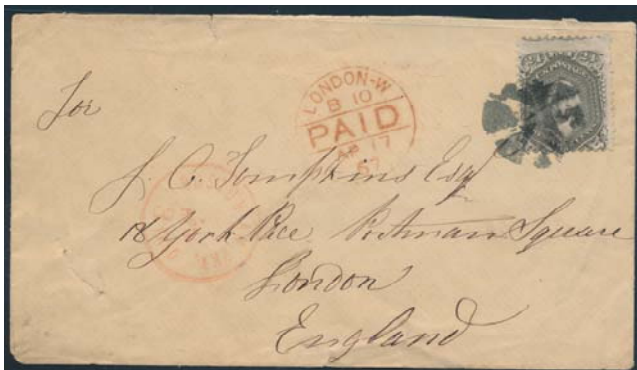 LONDON-W
B 10
PAID
AP 17
67
For
J. C. Tompkins Esq
18 York Place Portman Square
London
England